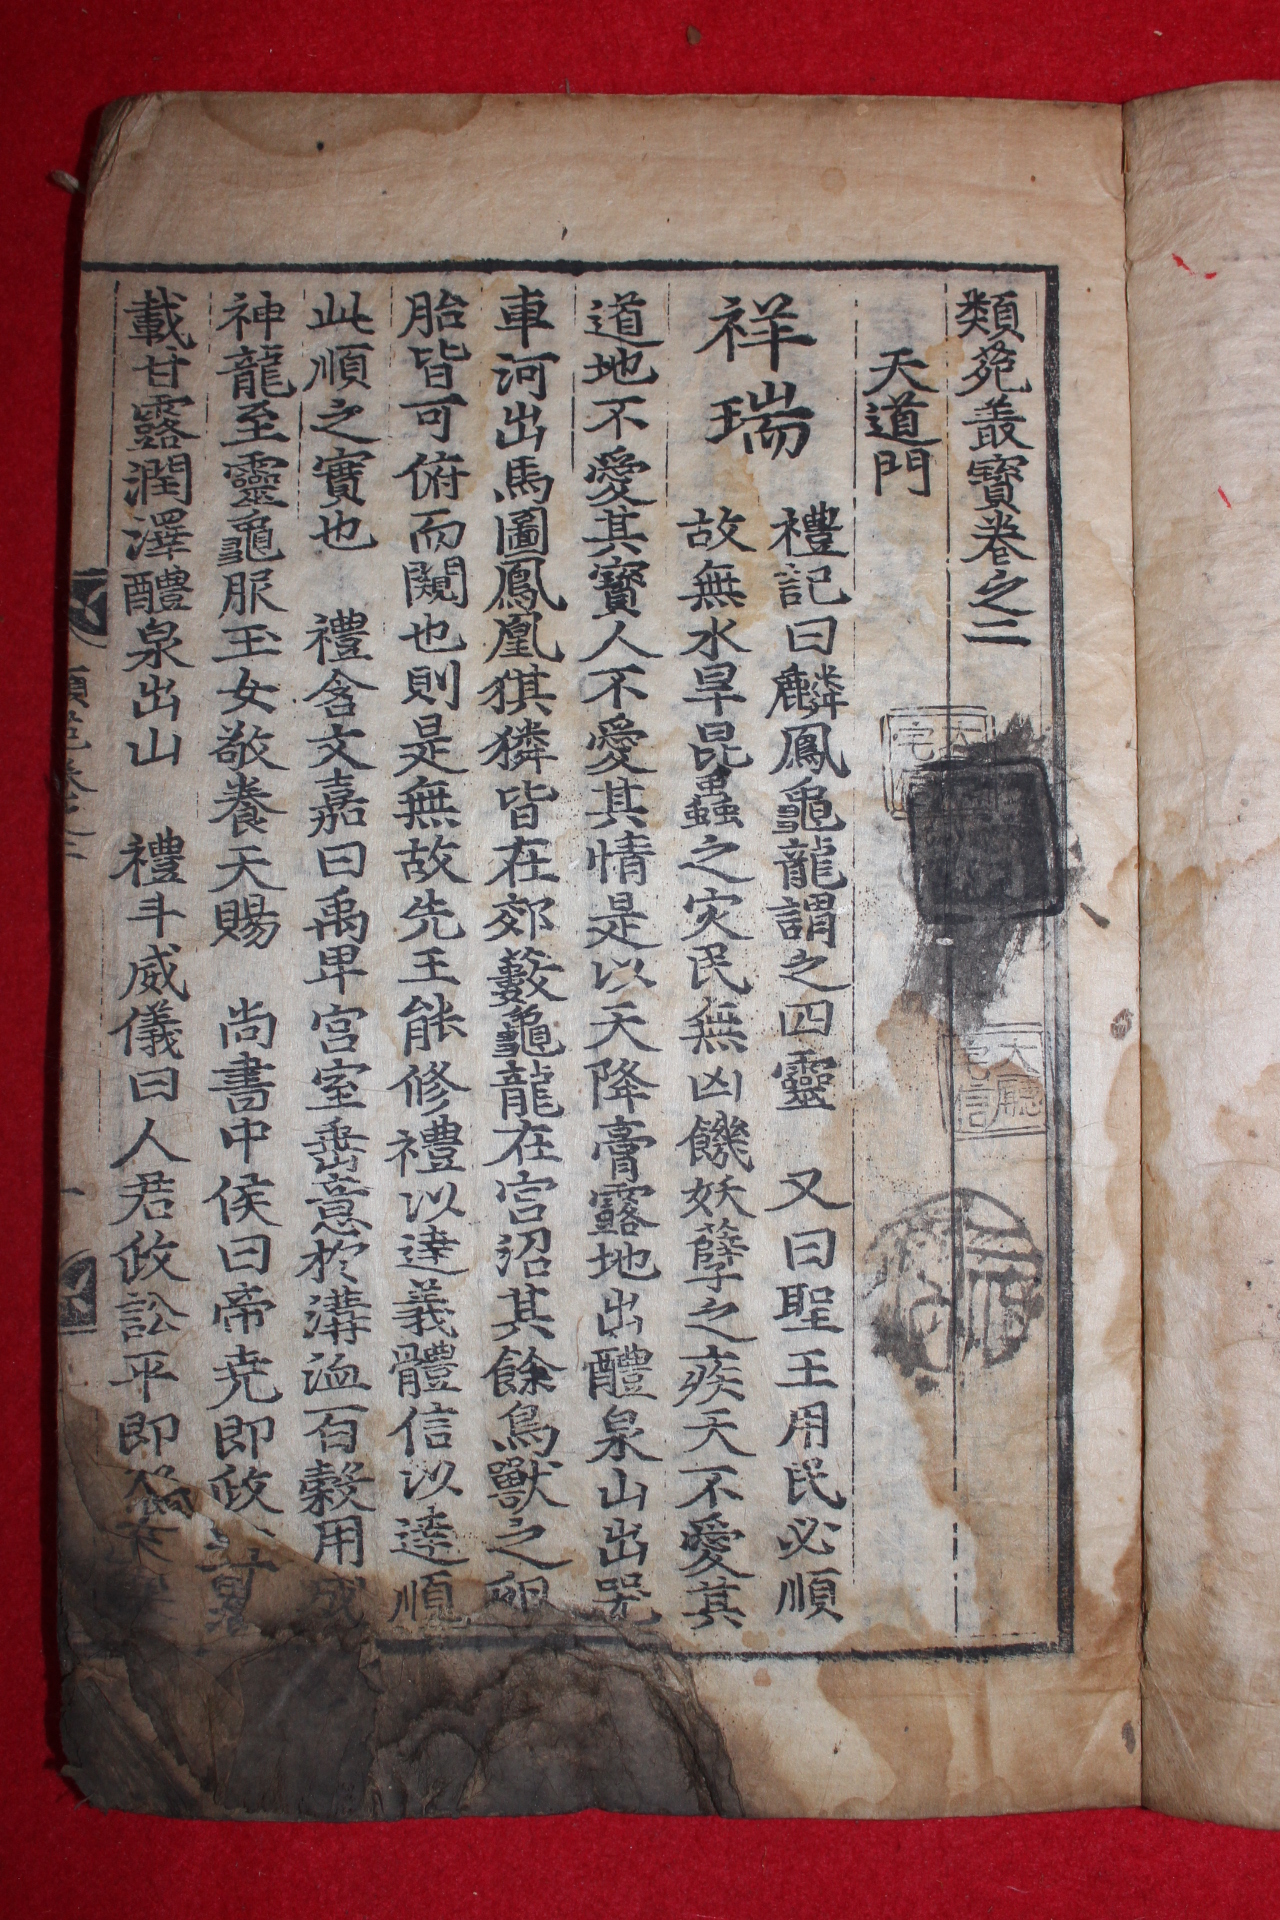 類苑叢寶卷之二
天道門
祥瑞
禮記曰麟鳳龜龍謂之四靈 又曰聖王用民必順
故無水旱昆蟲之灾民無凶饑妖孽之疾天不愛其
道地不愛其寶人不愛其情是以天降膏露地出醴泉山出器
車河出馬圖鳳凰猉獜皆在郊藪龜龍在宮沼其餘鳥獸之卵
胎皆可俯而闚也則是無故先王能修禮以達義體信以達順
此順之實也 禮含文嘉曰禹卑宮室垂意於溝洫百穀用成
神龍至靈龜服玉女敬養天賜 尚書中侯曰帝尭即政
載甘露潤澤醴泉出山 禮斗威儀曰人君政訟平即
類苑卷之二
一